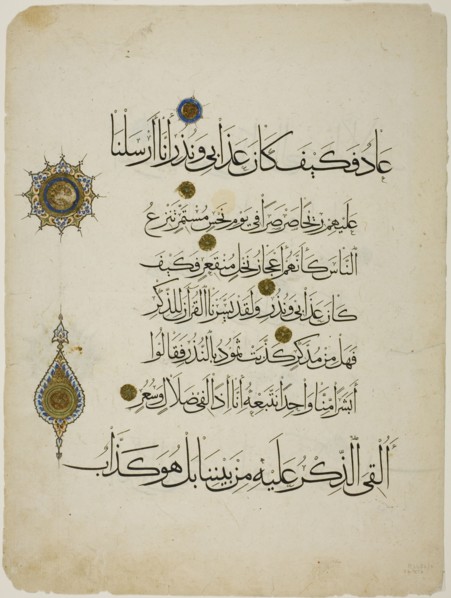 عاد فكيف كان عذابي ونذر إنا أرسلنا
عليهم ريحا صرصرا في يوم نحس مستمر تنزع
الناس كأنهم أعجاز نخل منقعر فكيف
كان عذابي ونذر ولقد يسرنا القرآن للذكر
فهل من مدكر كذبت ثمود بالنذر فقالوا
أبشرا منا واحدا نتبعه إنا إذا لفي ضلال وسعر
أألقي الذكر عليه من بيننا بل هو كذاب